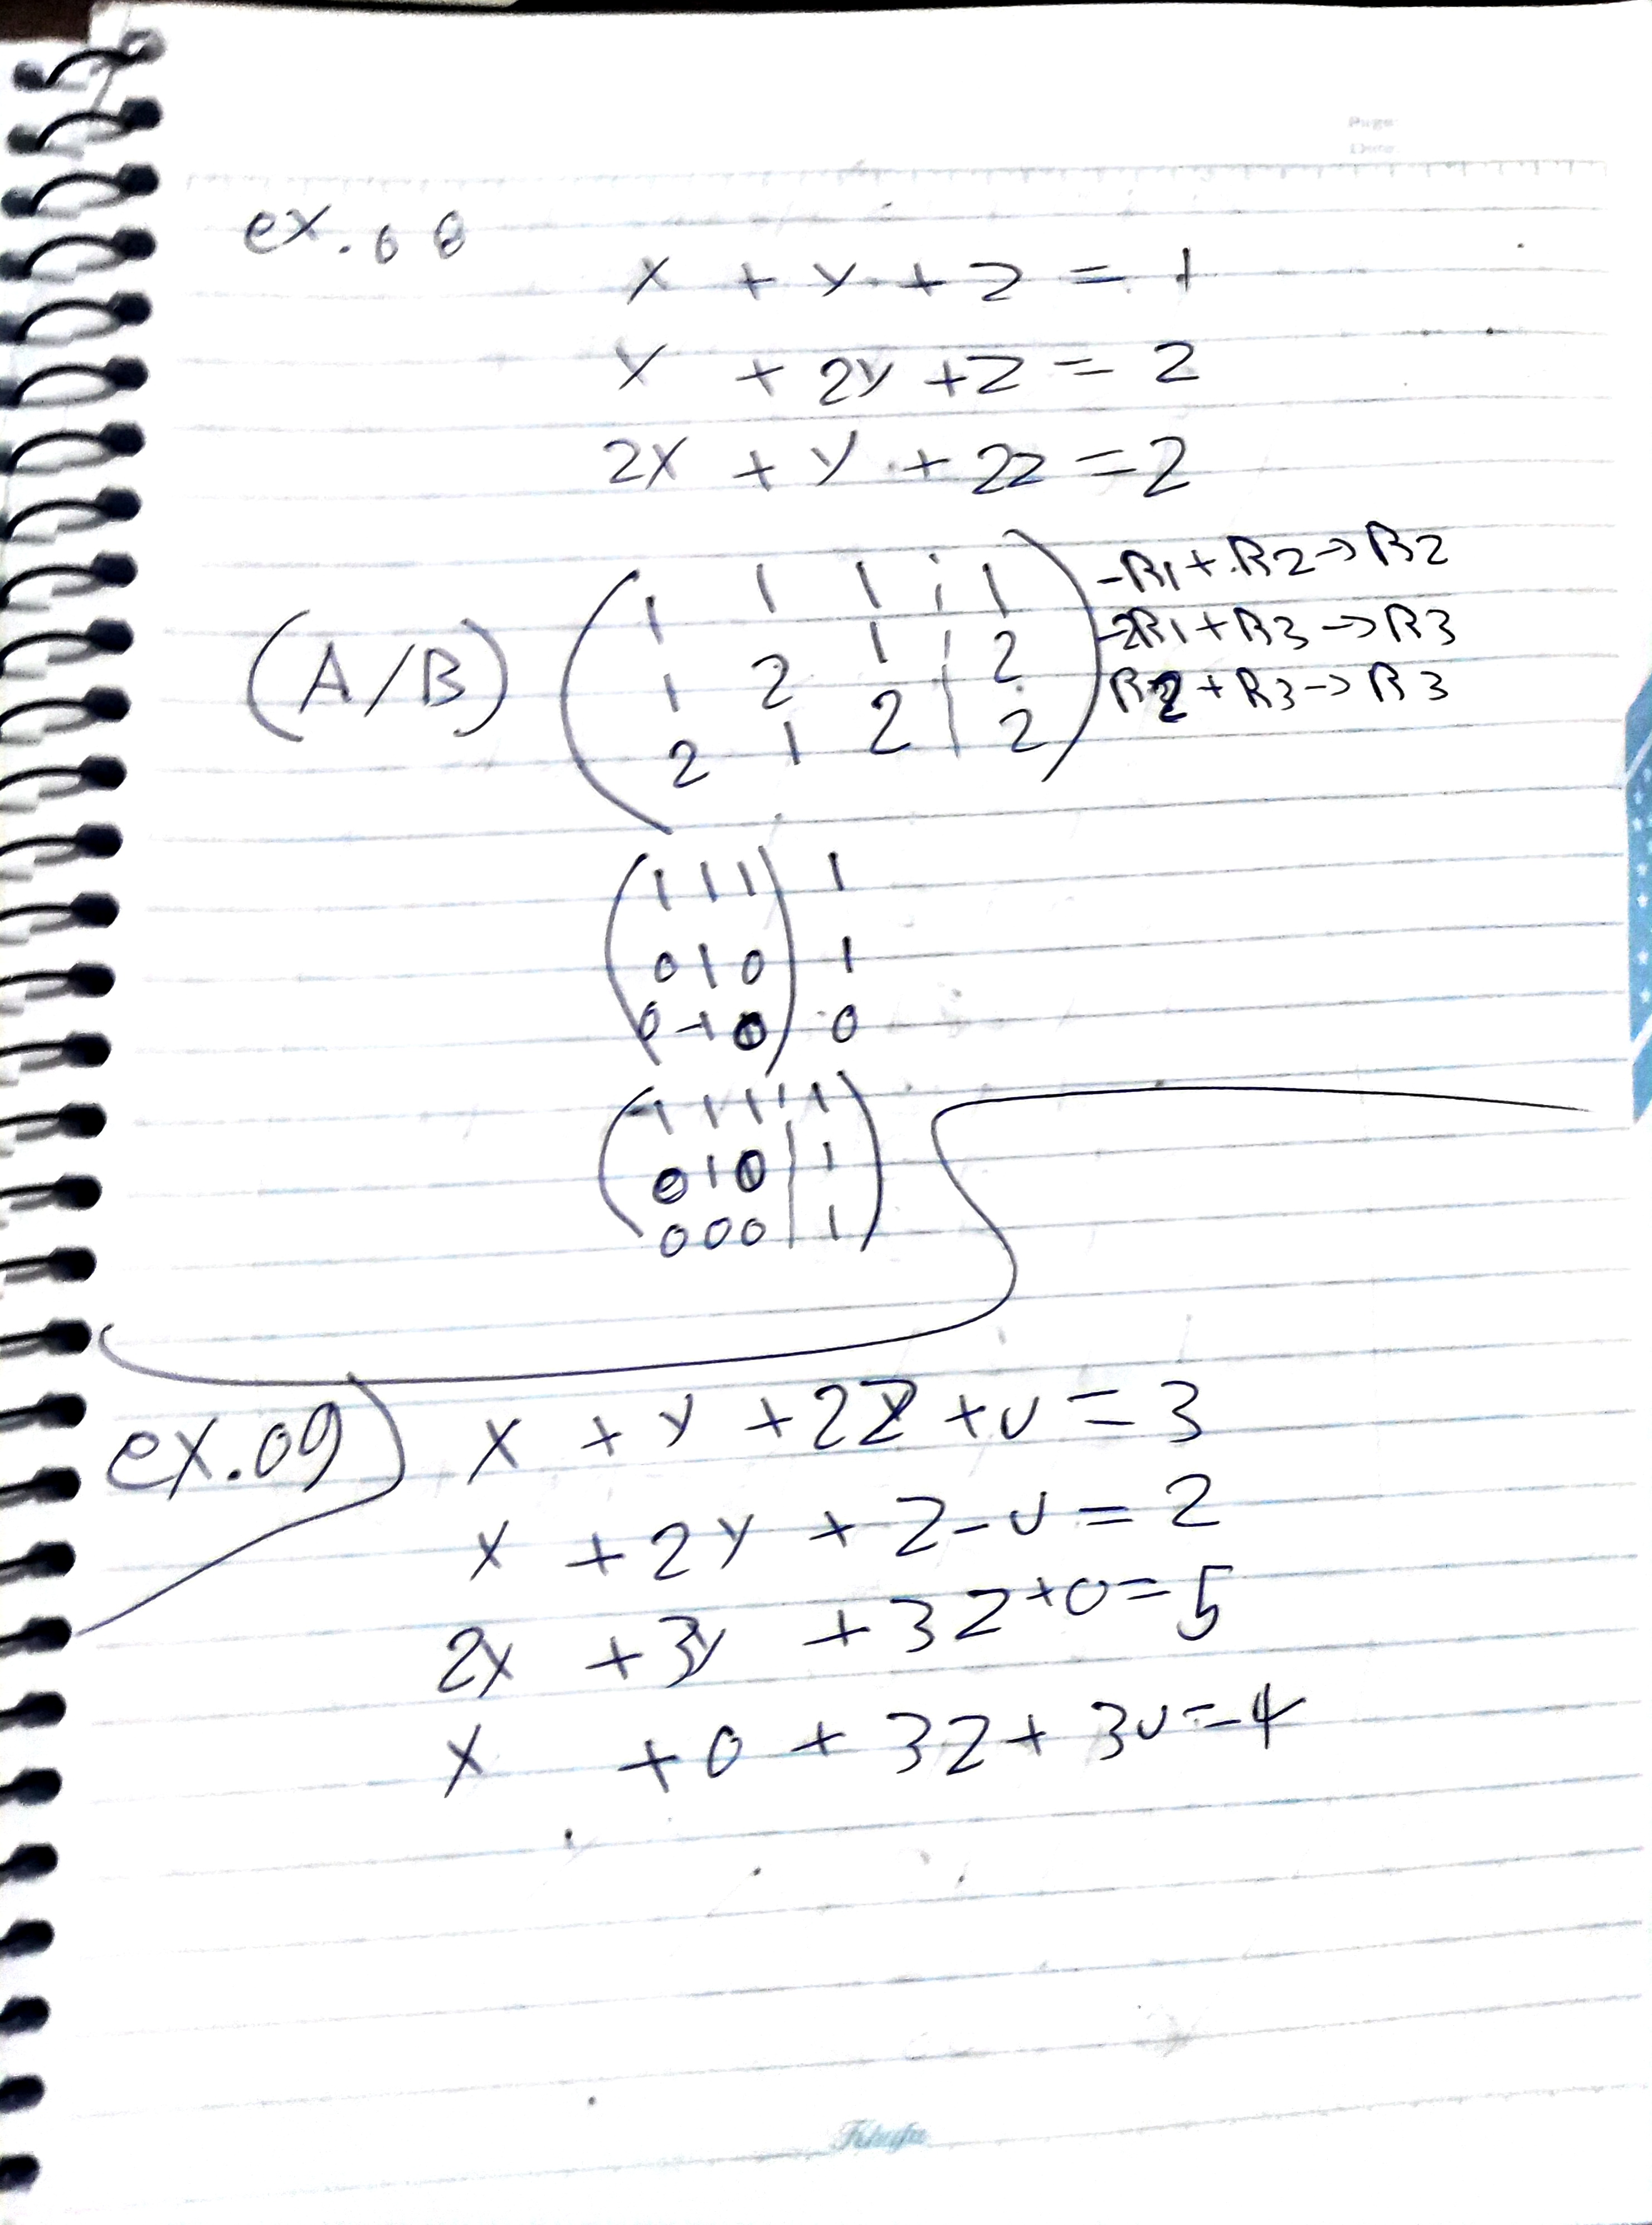 Page:
Date:
ex. 08
x + y + z = 1
x + 2y + z = 2
2x + y + 2z = 2
(A/B) ( 1 1 1 | 1 ) -R1 + R2 → R2
1 2 1 | 2 -2R1 + R3 → R3
2 1 2 | 2 R2 + R3 → R3
( 1 1 1 ) 1
0 1 0 1
0 -1 0 0
( 1 1 1 | 1 )
0 1 0 | 1
0 0 0 | 1
ex. 09) x + y + 2z + u = 3
x + 2y + z - u = 2
2x + 3y + 3z + 0 = 5
x + 0 + 3z + 3u = 4
Khufu